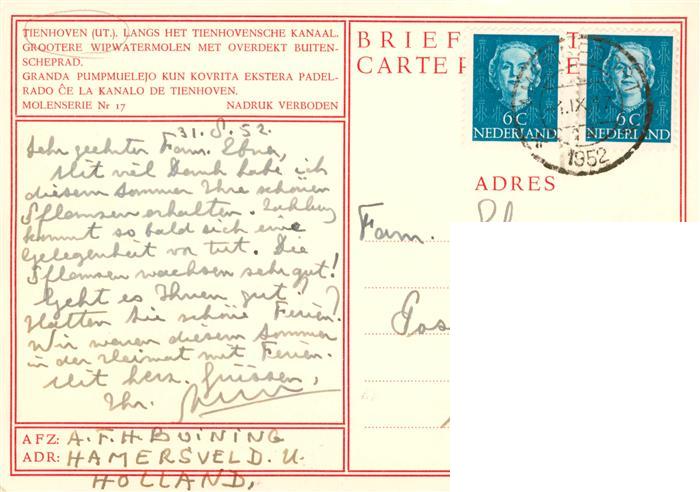 TIENHOVEN (UT.) LANGS HET TIENHOVENSCHE KANAAL.
GROOTERE WIPWATERMOLEN MET OVERDEKT BUITEN-
SCHEPRAD.
GRANDA PUMPMUELEJO KUN KOVRITA EKSTERA PADEL-
RADO ĈE LA KANALO DE TIENHOVEN.
MOLENSERIE Nr 17 NADRUK VERBODEN
31.8.52.
Sehr geehrter Fam. Ebner,
Mit viel Dank habe ich
diesem Sommer Ihre schönen
Pflanzen erhalten. Zahlung
kommt so bald sich eine
Gelegenheit vor tut. Die
Pflanzen wachsen sehr gut!
Geht es Ihnen gut?
Hatten Sie schöne Ferien?
Wir waren diesem Sommer
in der Heimat mit Ferien.
Mit herz. Grüssen,
Ihr.
AFZ: A.F.H. BUINING
ADR: HAMERSVELD. U.
HOLLAND.
BRIEF
CARTE P
6C 6C
NEDERLAND NEDERLAND
IX
1952
ADRES
Fam.
Pos